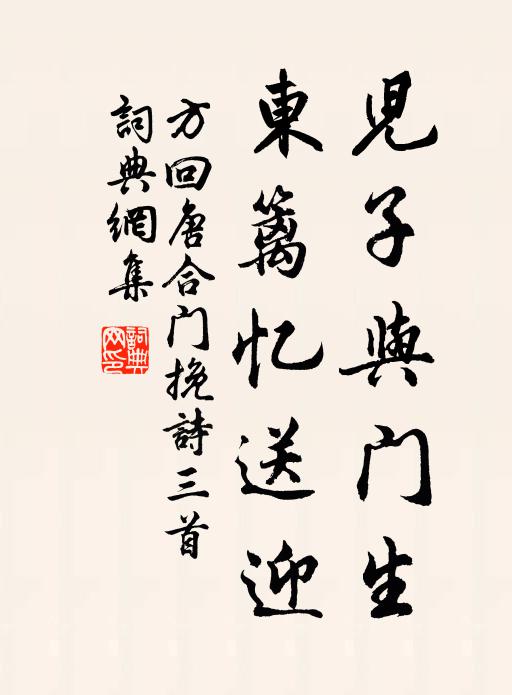 児子與门生
東籬忆送迎
方回唐合门挽詩三首
詞典網集
詞典網印